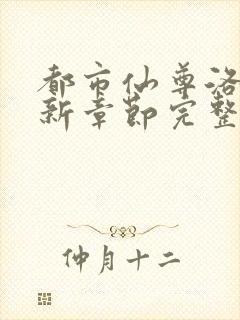 都市仙尊洛
新章节完整
仲月十二